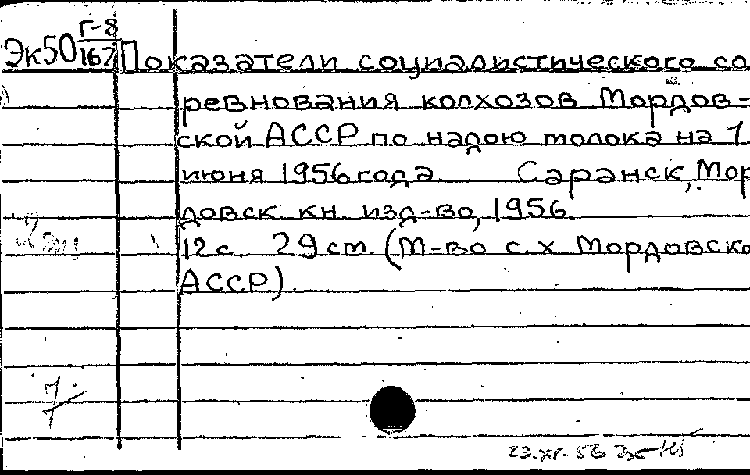 Эк50 Г-8
167
Показатели социалистического со
ревнования колхозов Мордов-
ской АССР по надою молока на 1
июня 1956 года. Саранск, Мор
довск. кн. изд-во, 1956.
12 с. 29 см. (М-во с. х. Мордовско
АССР).
7